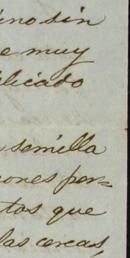 ino sin
e muy
licado
semilla
ones por-
tos que
las cercas,